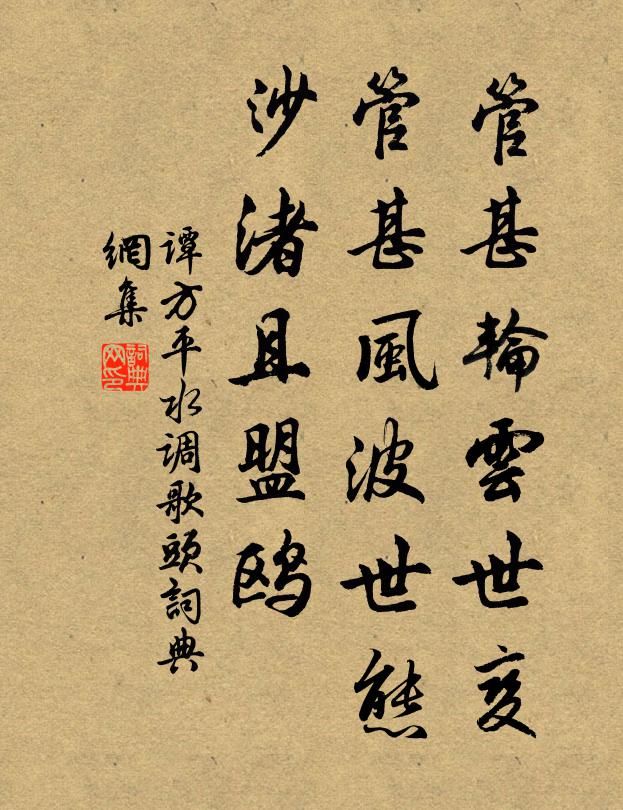 管甚輪雲世变
管甚風波世態
沙渚且盟鸥
谭方平水调歌頭詞典
網集
詞典网印